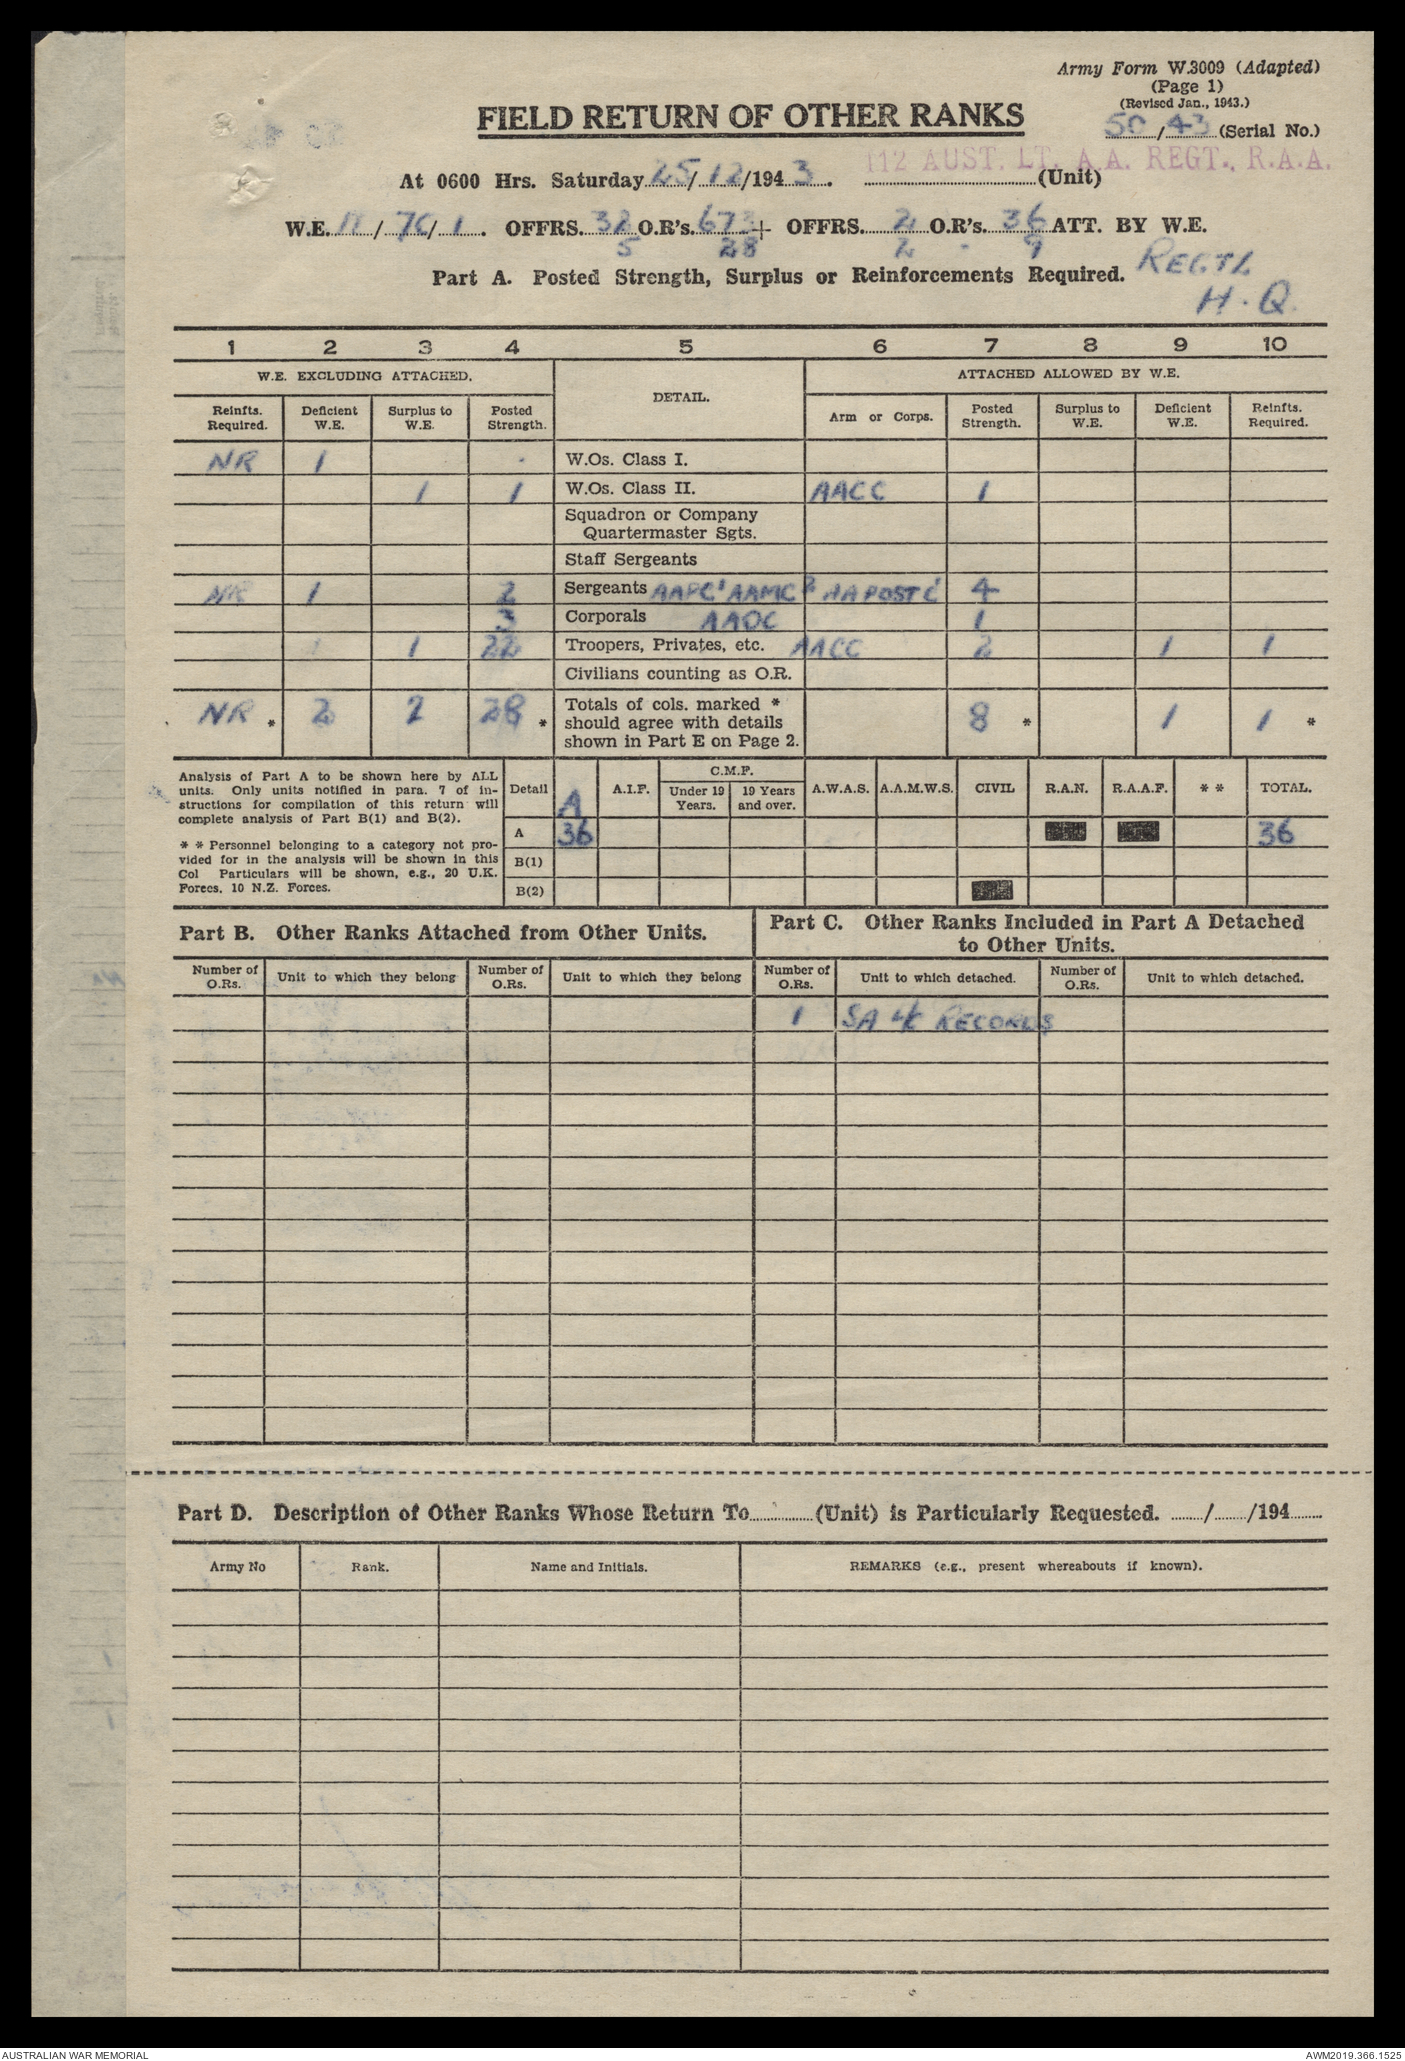 Army Form W.3009 (Adapted)
(Page 1)
(Revised Jan., 1943.)
FIELD RETURN OF OTHER RANKS
50/43 (Serial No.)
112 AUST. LT. A.A. REGT., R.A.A.
At 0600 Hrs. Saturday 25/12/1943. (Unit)
W.E. 11/76/1. OFFRS. 32 O.R's. 673 + OFFRS. 2 O.R's. 36 ATT. BY W.E.
5 28 2 - 9
Part A. Posted Strength, Surplus or Reinforcements Required. REGTL
H.Q.
1 2 3 4 5 6 7 8 9 10
W.E. EXCLUDING ATTACHED. DETAIL. ATTACHED ALLOWED BY W.E.
Reinfts. Required. Deficient W.E. Surplus to W.E. Posted Strength. Arm or Corps. Posted Strength. Surplus to W.E. Deficient W.E. Reinfts. Required.
NR 1 . W.Os. Class I.
1 1 W.Os. Class II. AACC 1
Squadron or Company
Quartermaster Sgts.
Staff Sergeants
NR 1 2 Sergeants AAPC' AAMC 2 AAPOSTC' 4
3 Corporals AAOC 1
1 1 22 Troopers, Privates, etc. AACC 2 1 1
Civilians counting as O.R.
NR * 2 2 28 * Totals of cols. marked * 8 * 1 1 *
should agree with details
shown in Part E on Page 2.
Analysis of Part A to be shown here by ALL
units. Only units notified in para. 7 of in-
structions for compilation of this return will
complete analysis of Part B(1) and B(2).
* * Personnel belonging to a category not pro-
vided for in the analysis will be shown in this
Col Particulars will be shown, e.g., 20 U.K.
Forces, 10 N.Z. Forces.
Detail A A.I.F. C.M.F. Under 19 Years. 19 Years and over. A.W.A.S. A.A.M.W.S. CIVIL R.A.N. R.A.A.F. * * TOTAL.
A 36 36
B(1)
B(2)
Part B. Other Ranks Attached from Other Units.
Part C. Other Ranks Included in Part A Detached
to Other Units.
Number of O.Rs. Unit to which they belong Number of O.Rs. Unit to which they belong Number of O.Rs. Unit to which detached. Number of O.Rs. Unit to which detached.
1 SA L/C RECORDS
Part D. Description of Other Ranks Whose Return To.............(Unit) is Particularly Requested. ......./......./194.......
Army No Rank. Name and Initials. REMARKS (e.g., present whereabouts if known).
AUSTRALIAN WAR MEMORIAL AWM2019.366.1525